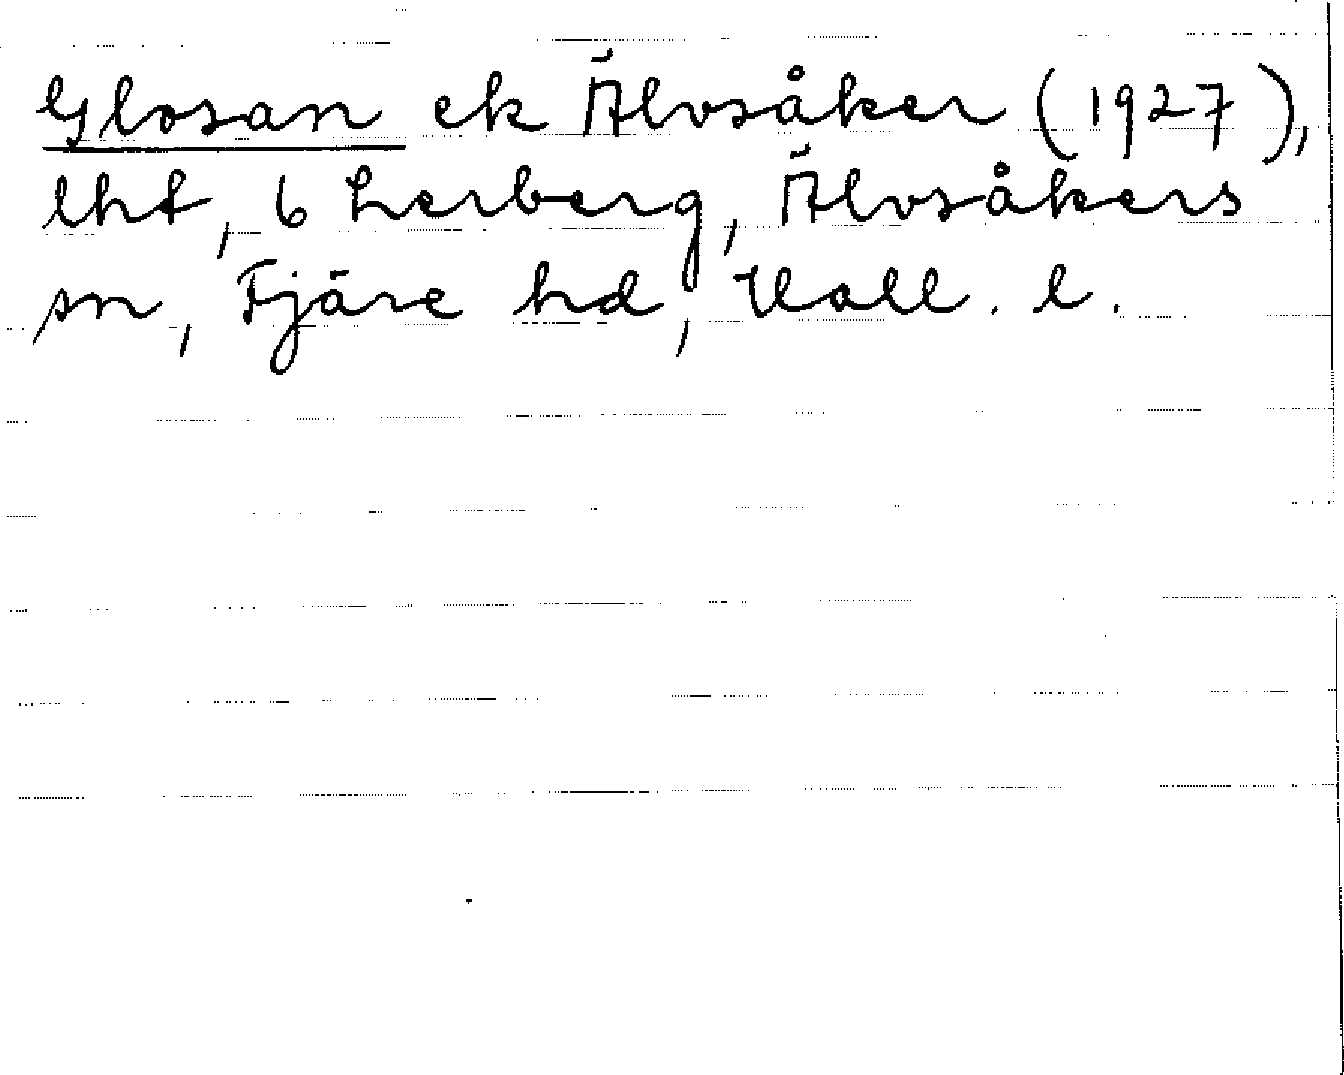 Glosan ek Älvsåker (1927),
lht, 6 Lerberg, Älvsåkers
sn, Fjäre hd, Hall. l.